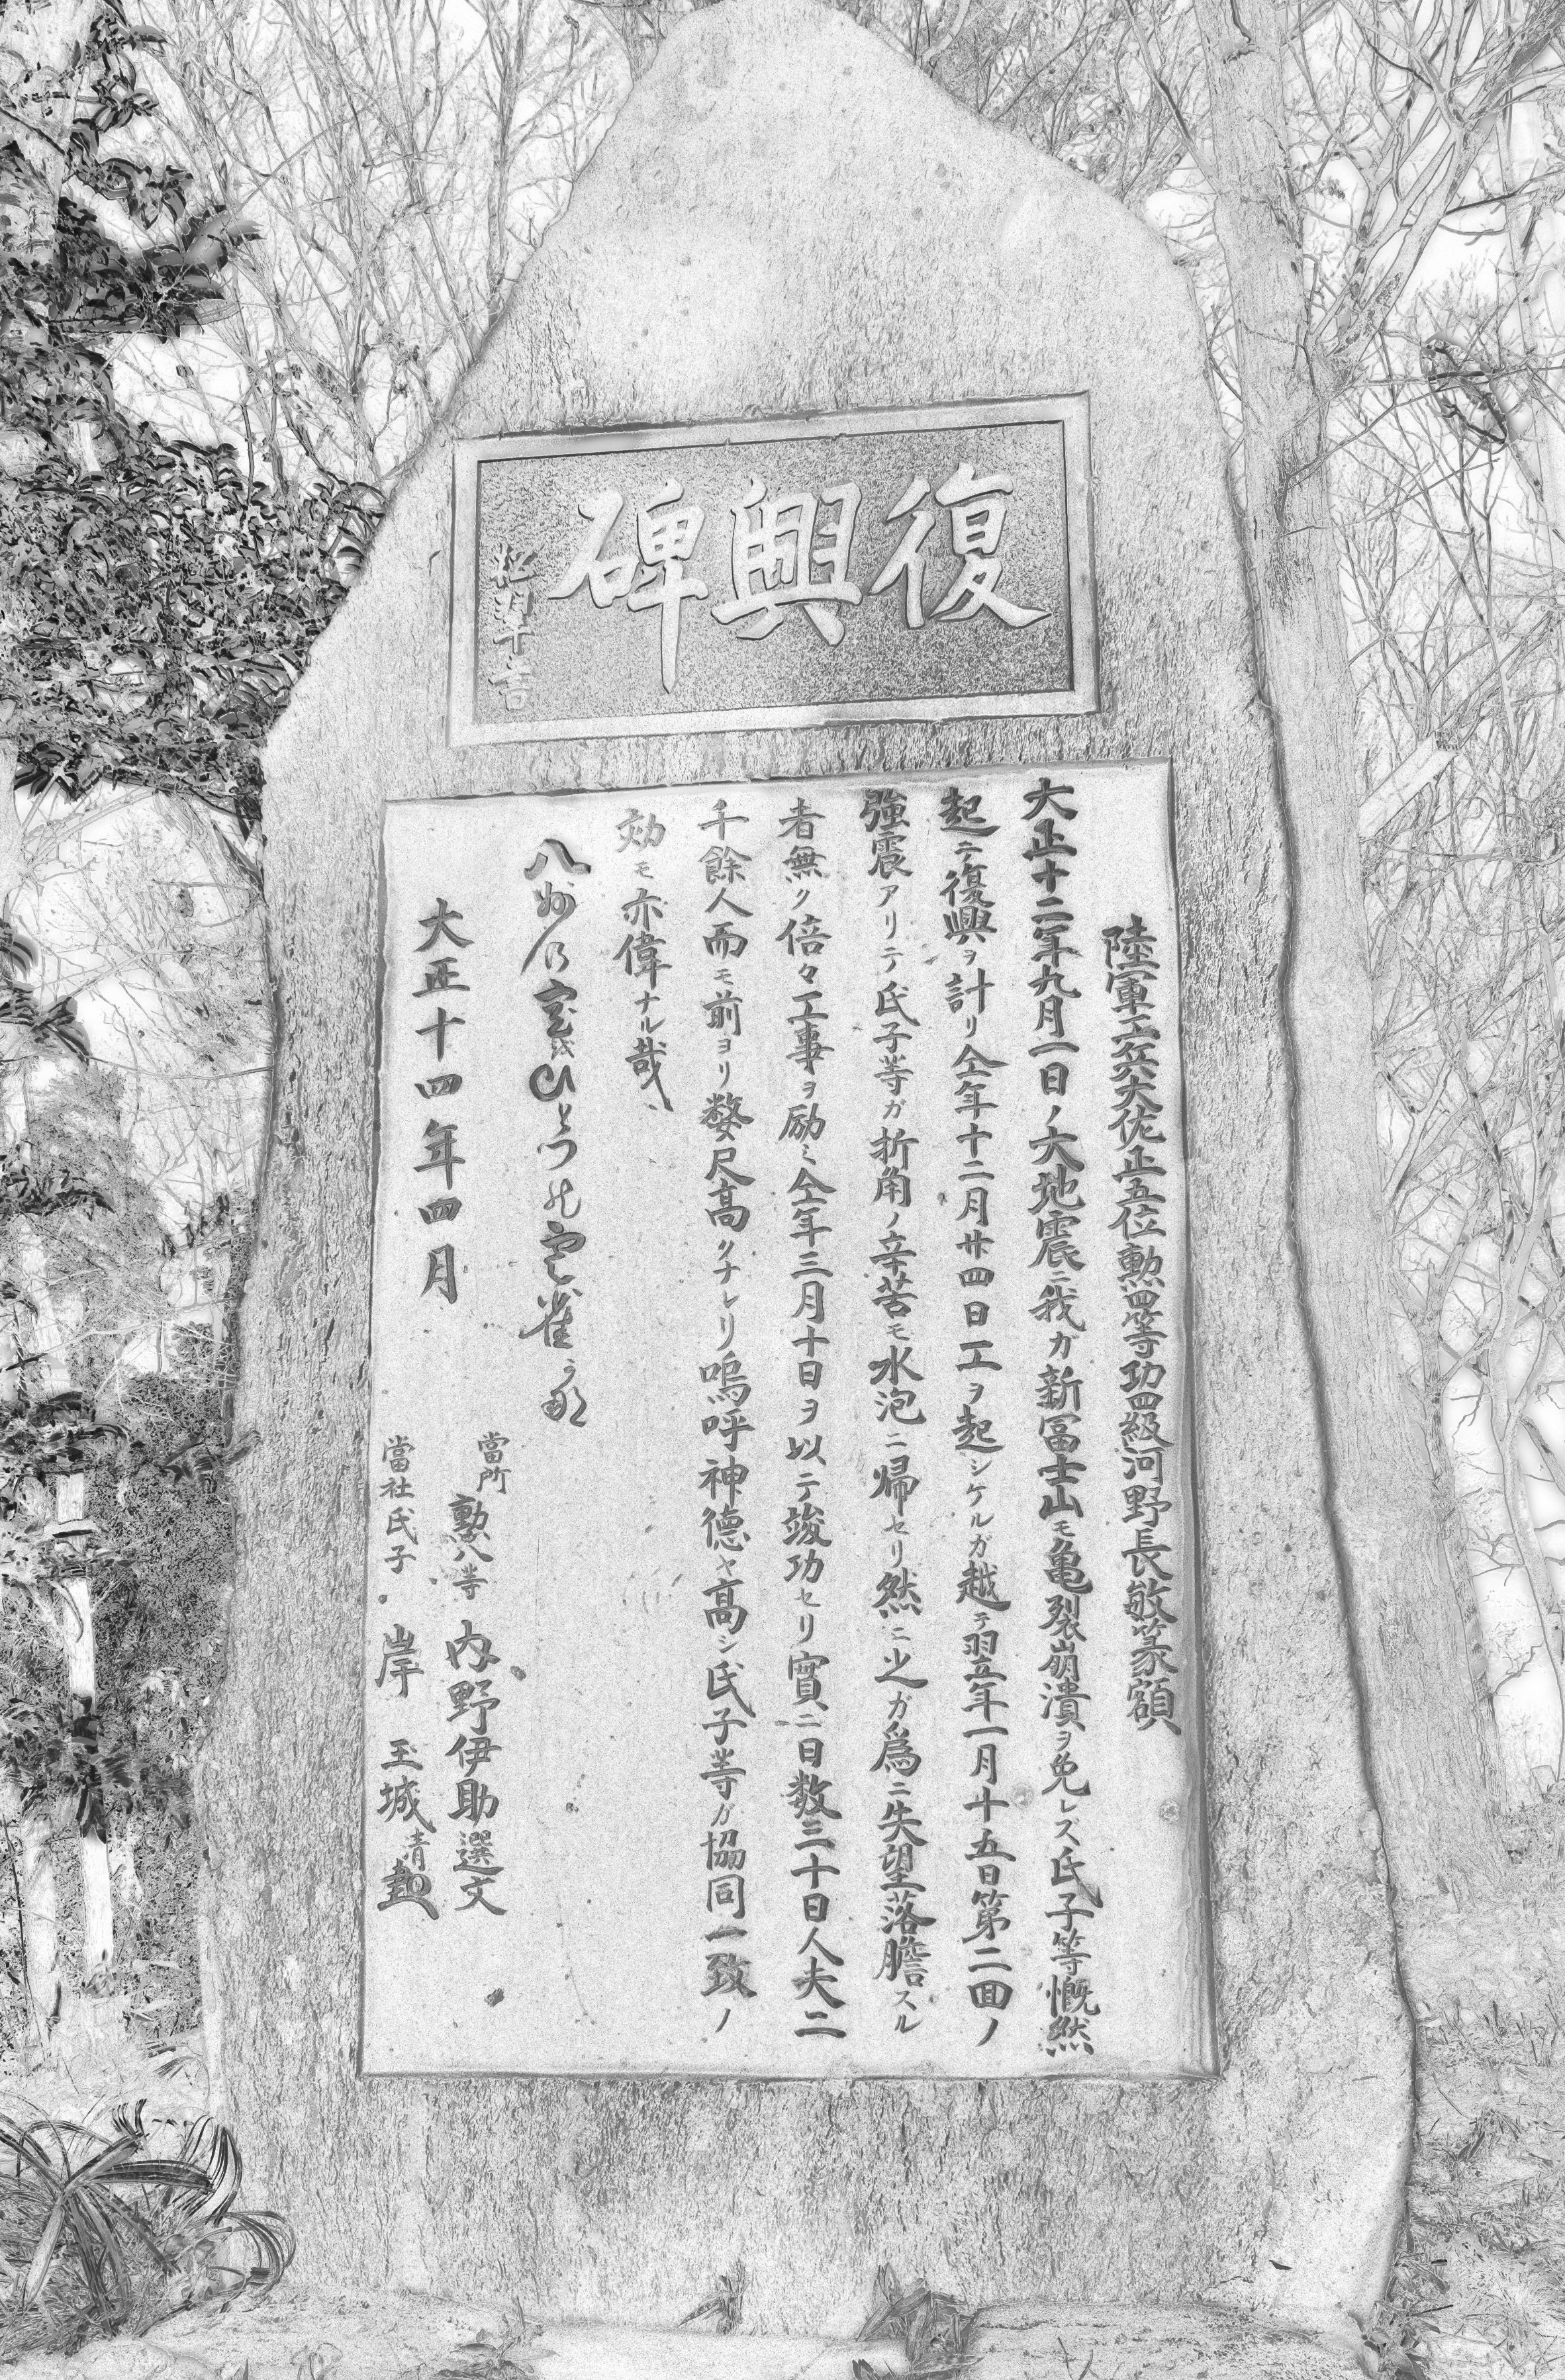 復興碑
陸軍工兵大佐正五位勲四等功四級河野長敏篆額
大正十二年九月一日ノ大地震ニ我ガ新冨士山モ亀裂崩潰ヲ免レズ氏子等慨然
起テ復興ヲ計リ仝年十二月廿四日工ヲ起シケルガ越テ翌年一月十五日第二回ノ
強震アリテ氏子等ガ折角ノ辛苦モ水泡ニ帰セリ然ニ之ガ爲ニ失望落膽スル
者無ク倍々工事ヲ励ミ仝年三月十日ヲ以テ竣功セリ實ニ日数三十日人夫二
千餘人而モ前ヨリ數尺高クナレリ嗚呼神德ヤ高シ氏子等ガ協同一致ノ
効モ亦偉ナル哉
大正十四年四月
當所 勲八等 内野伊助選文
當社氏子 岸 玉城